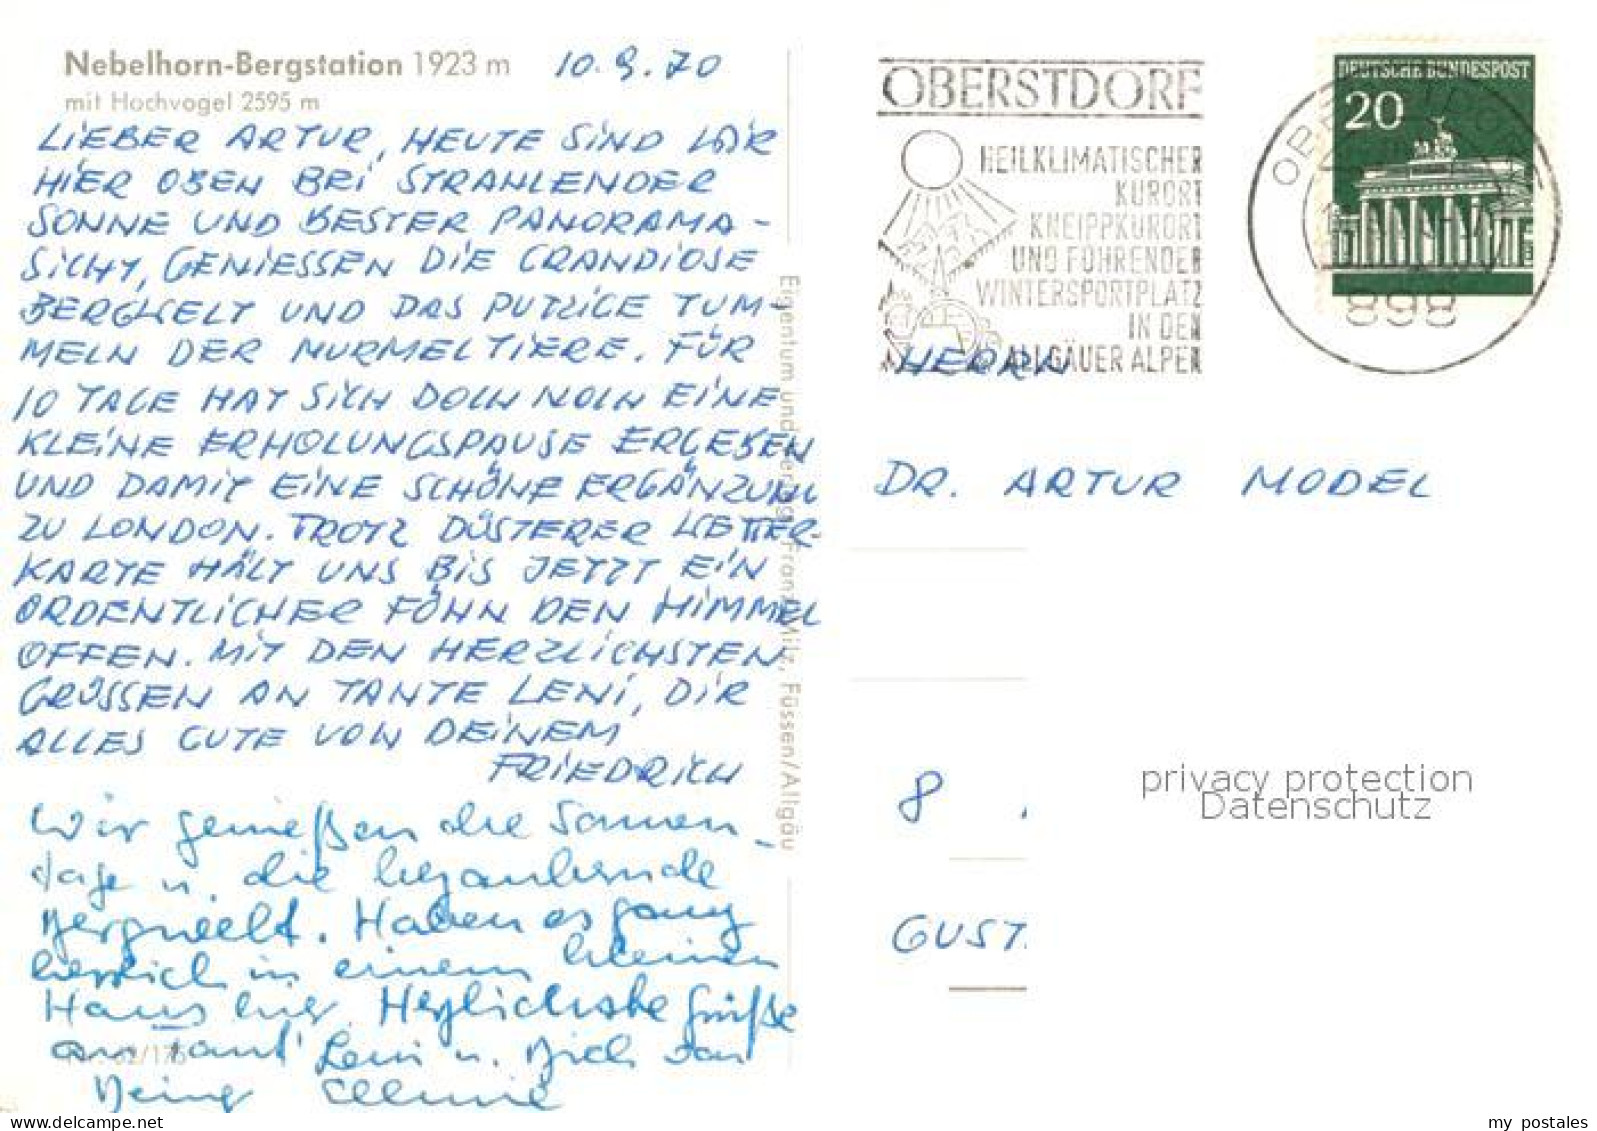 Nebelhorn-Bergstation 1923 m 10.9.70
mit Hochvogel 2595 m
LIEBER ARTUR, HEUTE SIND WIR
HIER OBEN BEI STRAHLENDER
SONNE UND BESTER PANORAMA-
SICHT, GENIESSEN DIE GRANDIOSE
BERGWELT UND DAS PUTZIGE TUM-
MELN DER MURMELTIERE. FÜR
10 TAGE HAT SICH DOCH NOCH EINE
KLEINE ERHOLUNGSPAUSE ERGEBEN
UND DAMIT EINE SCHÖNE ERGÄNZUNG
ZU LONDON. TROTZ DÜSTERER WETTER-
KARTE HÄLT UNS BIS JETZT EIN
ORDENTLICHER FÖHN DEN HIMMEL
OFFEN. MIT DEN HERZLICHSTEN
GRÜSSEN AN TANTE LENI, DIR
ALLES GUTE VON DEINEM
FRIEDRICH
Wir genießen die Sonnen-
tage u. die bezaubernde
Bergwelt. Haben es ganz
herrlich in einem kleinen
Haus hier. Herzlichste Grüße
an Tante Leni u. Dich von
Deiner
62/176
Eigentum und Verlag Franz Milz, Füssen/Allgäu
OBERSTDORF
HEILKLIMATISCHER
KURORT
KNEIPPKURORT
UND FÜHRENDER
WINTERSPORTPLATZ
IN DEN
ALLGÄUER ALPEN
DEUTSCHE BUNDESPOST
20
OBERSTDORF
898
HERRN
DR. ARTUR MODEL
8
GUST
privacy protection
Datenschutz
my_postales